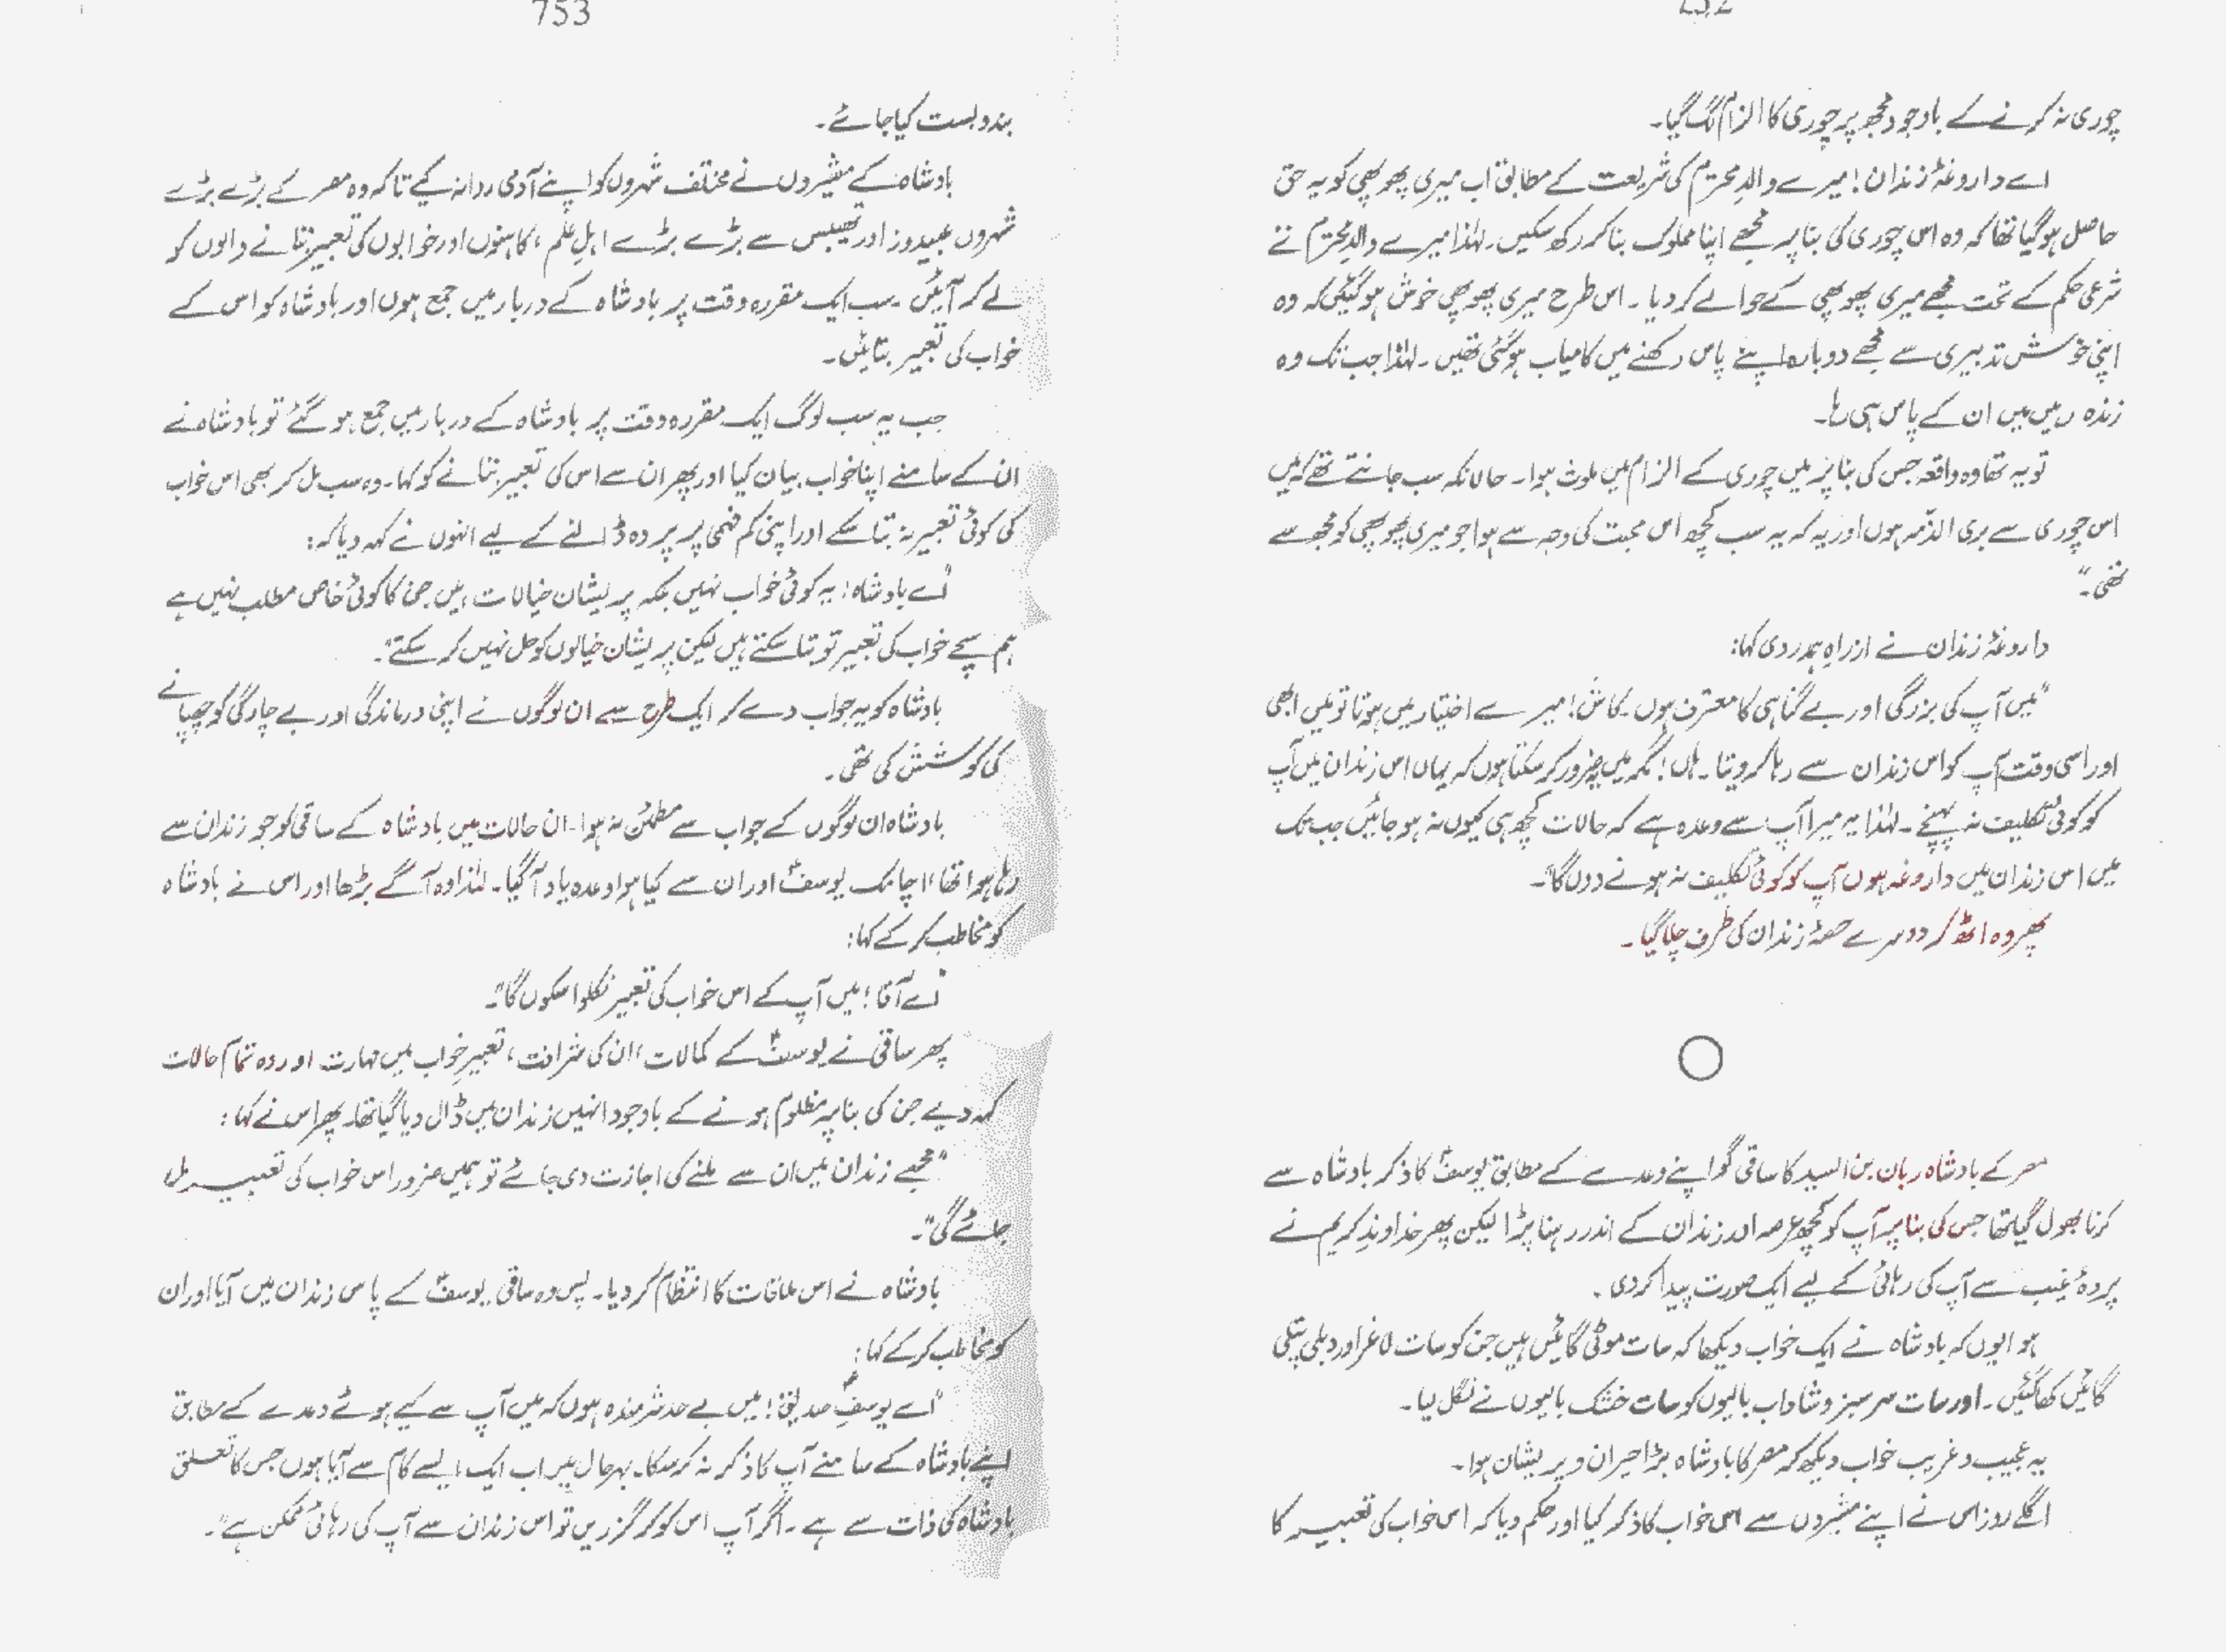 چوری نہ کرنے کے باوجود مجھ پر چوری کا الزام لگ گیا۔
اے داروغۂ زندان! میرے والدِ محترم کی شریعت کے مطابق اب میری پھوپھی کو یہ حق
حاصل ہوگیا تھا کہ وہ اس چوری کی بنا پر مجھے اپنا مملوک بنا کر رکھ سکیں۔ لہٰذا میرے والدِ محترم نے
شرعی حکم کے تحت مجھے میری پھوپھی کے حوالے کر دیا۔ اس طرح میری پھوپھی خوش ہوگئیں کہ وہ
اپنی خوش تدبیری سے مجھے دوبارہ اپنے پاس رکھنے میں کامیاب ہوگئی تھیں۔ لہٰذا جب تک وہ
زندہ رہیں میں ان کے پاس ہی رہا۔
تو یہ تھا وہ واقعہ جس کی بنا پر میں چوری کے الزام میں ملوث ہوا۔ حالانکہ سب جانتے تھے کہ میں
اس چوری سے بری الذمہ ہوں اور یہ کہ یہ سب کچھ اس محبت کی وجہ سے ہوا جو میری پھوپھی کو مجھ سے
تھی۔"
داروغۂ زندان نے ازراہِ ہمدردی کہا:
"میں آپ کی بزرگی اور بے گناہی کا معترف ہوں۔ کاش! میرے اختیار میں ہوتا تو میں ابھی
اور اسی وقت آپ کو اس زندان سے رہا کر دیتا۔ ہاں! مگر میں یہ ضرور کر سکتا ہوں کہ یہاں اس زندان میں آپ
کو کوئی تکلیف نہ پہنچے۔ لہٰذا یہ میرا آپ سے وعدہ ہے کہ حالات کچھ ہی کیوں نہ ہو جائیں جب تک
میں اس زندان میں داروغہ ہوں آپ کو کوئی تکلیف نہ ہونے دوں گا"۔
پھر وہ اٹھ کر دوسرے حصۂ زندان کی طرف چلا گیا۔
مصر کے بادشاہ ریان بن السید کا ساقی گو اپنے وعدے کے مطابق یوسفؑ کا ذکر بادشاہ سے
کرنا بھول گیا تھا جس کی بنا پر آپ کو کچھ عرصہ اور زندان کے اندر رہنا پڑا لیکن پھر خداوندِ کریم نے
پردۂ غیب سے آپ کی رہائی کے لیے ایک صورت پیدا کر دی۔
ہوا یوں کہ بادشاہ نے ایک خواب دیکھا کہ سات موٹی گائیں ہیں جن کو سات لاغر اور دبلی پتلی
گائیں کھا گئیں۔ اور سات سرسبز و شاداب بالیوں کو سات خشک بالیوں نے نگل لیا۔
یہ عجیب و غریب خواب دیکھ کر مصر کا بادشاہ بڑا حیران و پریشان ہوا۔
اگلے روز اس نے اپنے مشیروں سے اس خواب کا ذکر کیا اور حکم دیا کہ اس خواب کی تعبیر کا
753
بندوبست کیا جائے۔
بادشاہ کے مشیروں نے مختلف شہروں کو اپنے آدمی روانہ کیے تاکہ وہ مصر کے بڑے بڑے
شہروں عبیدوز اور تھیبس سے بڑے بڑے اہلِ علم، کاہنوں اور خوابوں کی تعبیر بتانے والوں کو
لے کر آئیں۔ سب ایک مقررہ وقت پر بادشاہ کے دربار میں جمع ہوں اور بادشاہ کو اس کے
خواب کی تعبیر بتائیں۔
جب یہ سب لوگ ایک مقررہ وقت پر بادشاہ کے دربار میں جمع ہو گئے تو بادشاہ نے
ان کے سامنے اپنا خواب بیان کیا اور پھر ان سے اس کی تعبیر بتانے کو کہا۔ وہ سب مل کر بھی اس خواب
کی کوئی تعبیر نہ بتا سکے اور اپنی کم فہمی پر پردہ ڈالنے کے لیے انہوں نے کہہ دیا کہ:
"اے بادشاہ! یہ کوئی خواب نہیں بلکہ پریشان خیالات ہیں جن کا کوئی خاص مطلب نہیں ہے
ہم سچے خواب کی تعبیر تو بتا سکتے ہیں لیکن پریشان خیالوں کو حل نہیں کر سکتے"۔
بادشاہ کو یہ جواب دے کر ایک طرح سے ان لوگوں نے اپنی درماندگی اور بے چارگی کو چھپانے
کی کوشش کی تھی۔
بادشاہ ان لوگوں کے جواب سے مطمئن نہ ہوا۔ ان حالات میں بادشاہ کے ساقی کو جو زندان سے
رہا ہوا تھا، اچانک یوسفؑ اور ان سے کیا ہوا وعدہ یاد آ گیا۔ لہٰذا وہ آگے بڑھا اور اس نے بادشاہ
کو مخاطب کر کے کہا:
"اے آقا! میں آپ کے اس خواب کی تعبیر نکلوا سکوں گا"۔
پھر ساقی نے یوسفؑ کے کمالات، ان کی شرافت، تعبیرِ خواب میں مہارت اور وہ تمام حالات
کہہ دیے جن کی بنا پر مظلوم ہونے کے باوجود انہیں زندان میں ڈال دیا گیا تھا۔ پھر اس نے کہا:
"مجھے زندان میں ان سے ملنے کی اجازت دی جائے تو ہمیں ضرور اس خواب کی تعبیر مل
جائے گی"۔
بادشاہ نے اس ملاقات کا انتظام کر دیا۔ پس وہ ساقی یوسفؑ کے پاس زندان میں آیا اور ان
کو مخاطب کر کے کہا:
"اے یوسفِ صدیق! میں بے حد شرمندہ ہوں کہ میں آپ سے کیے ہوئے وعدے کے مطابق
اپنے بادشاہ کے سامنے آپ کا ذکر نہ کر سکا۔ بہرحال میں اب ایک ایسے کام سے آیا ہوں جس کا تعلق
بادشاہ کی ذات سے ہے۔ اگر آپ اس کو کر گزریں تو اس زندان سے آپ کی رہائی ممکن ہے"۔